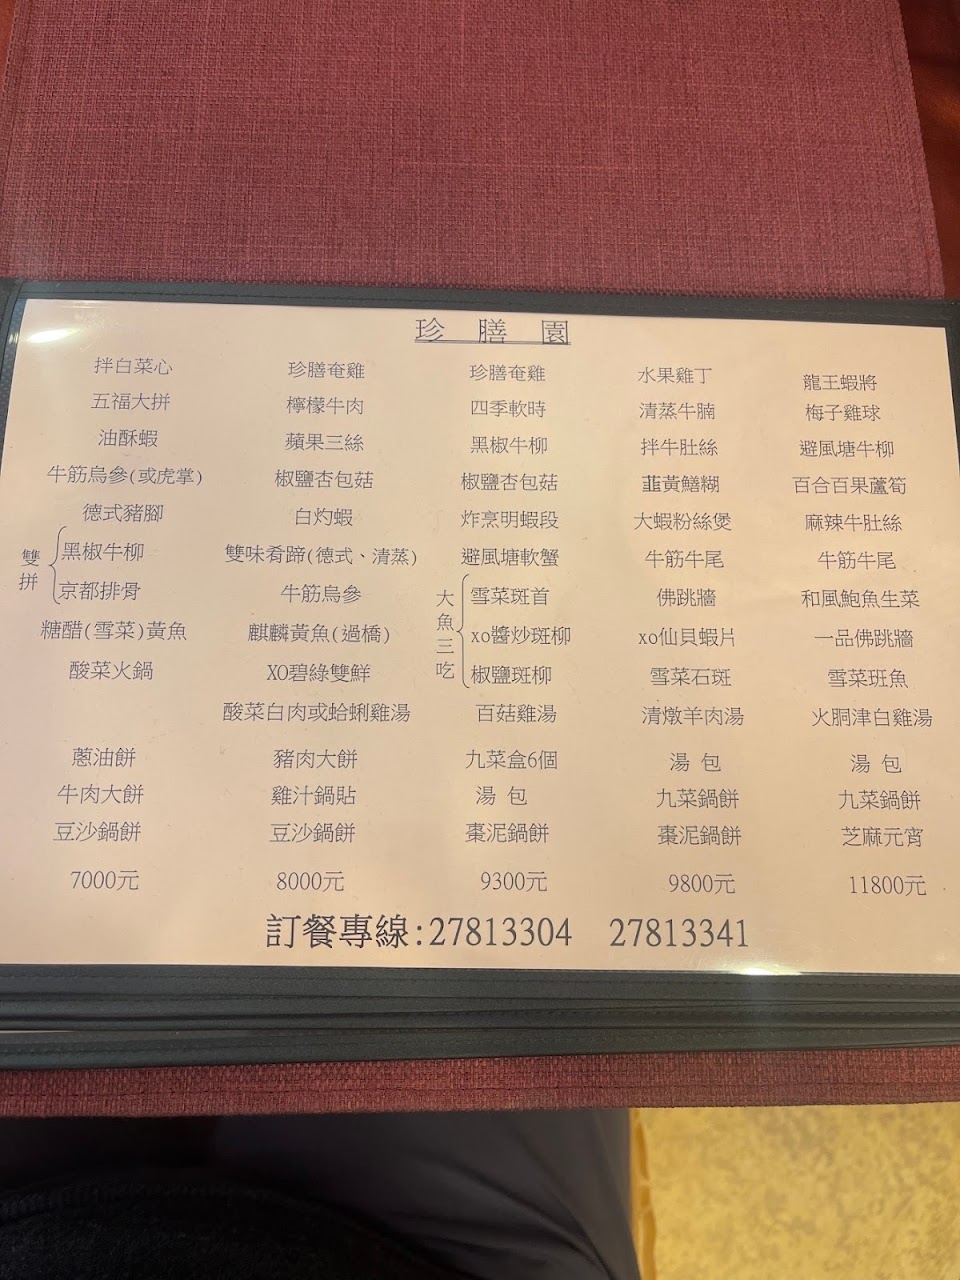 珍膳園
拌白菜心
五福大拼
油酥蝦
牛筋烏參(或虎掌)
德式豬腳
雙拼
黑椒牛柳
京都排骨
糖醋(雪菜)黃魚
酸菜火鍋
蔥油餅
牛肉大餅
豆沙鍋餅
7000元
珍膳奄雞
檸檬牛肉
蘋果三絲
椒鹽杏包菇
白灼蝦
雙味肴蹄(德式、清蒸)
牛筋烏參
麒麟黃魚(過橋)
XO碧綠雙鮮
酸菜白肉或蛤蜊雞湯
豬肉大餅
雞汁鍋貼
豆沙鍋餅
8000元
珍膳奄雞
四季軟時
黑椒牛柳
椒鹽杏包菇
炸烹明蝦段
避風塘軟蟹
大魚三吃
雪菜斑首
xo醬炒斑柳
椒鹽斑柳
百菇雞湯
九菜盒6個
湯包
棗泥鍋餅
9300元
水果雞丁
清蒸牛腩
拌牛肚絲
韮黃鱔糊
大蝦粉絲煲
牛筋牛尾
佛跳牆
xo仙貝蝦片
雪菜石斑
清燉羊肉湯
湯包
九菜鍋餅
棗泥鍋餅
9800元
龍王蝦將
梅子雞球
避風塘牛柳
百合百果蘆筍
麻辣牛肚絲
牛筋牛尾
和風鮑魚生菜
一品佛跳牆
雪菜班魚
火胴津白雞湯
湯包
九菜鍋餅
芝麻元宵
11800元
訂餐專線:27813304 27813341